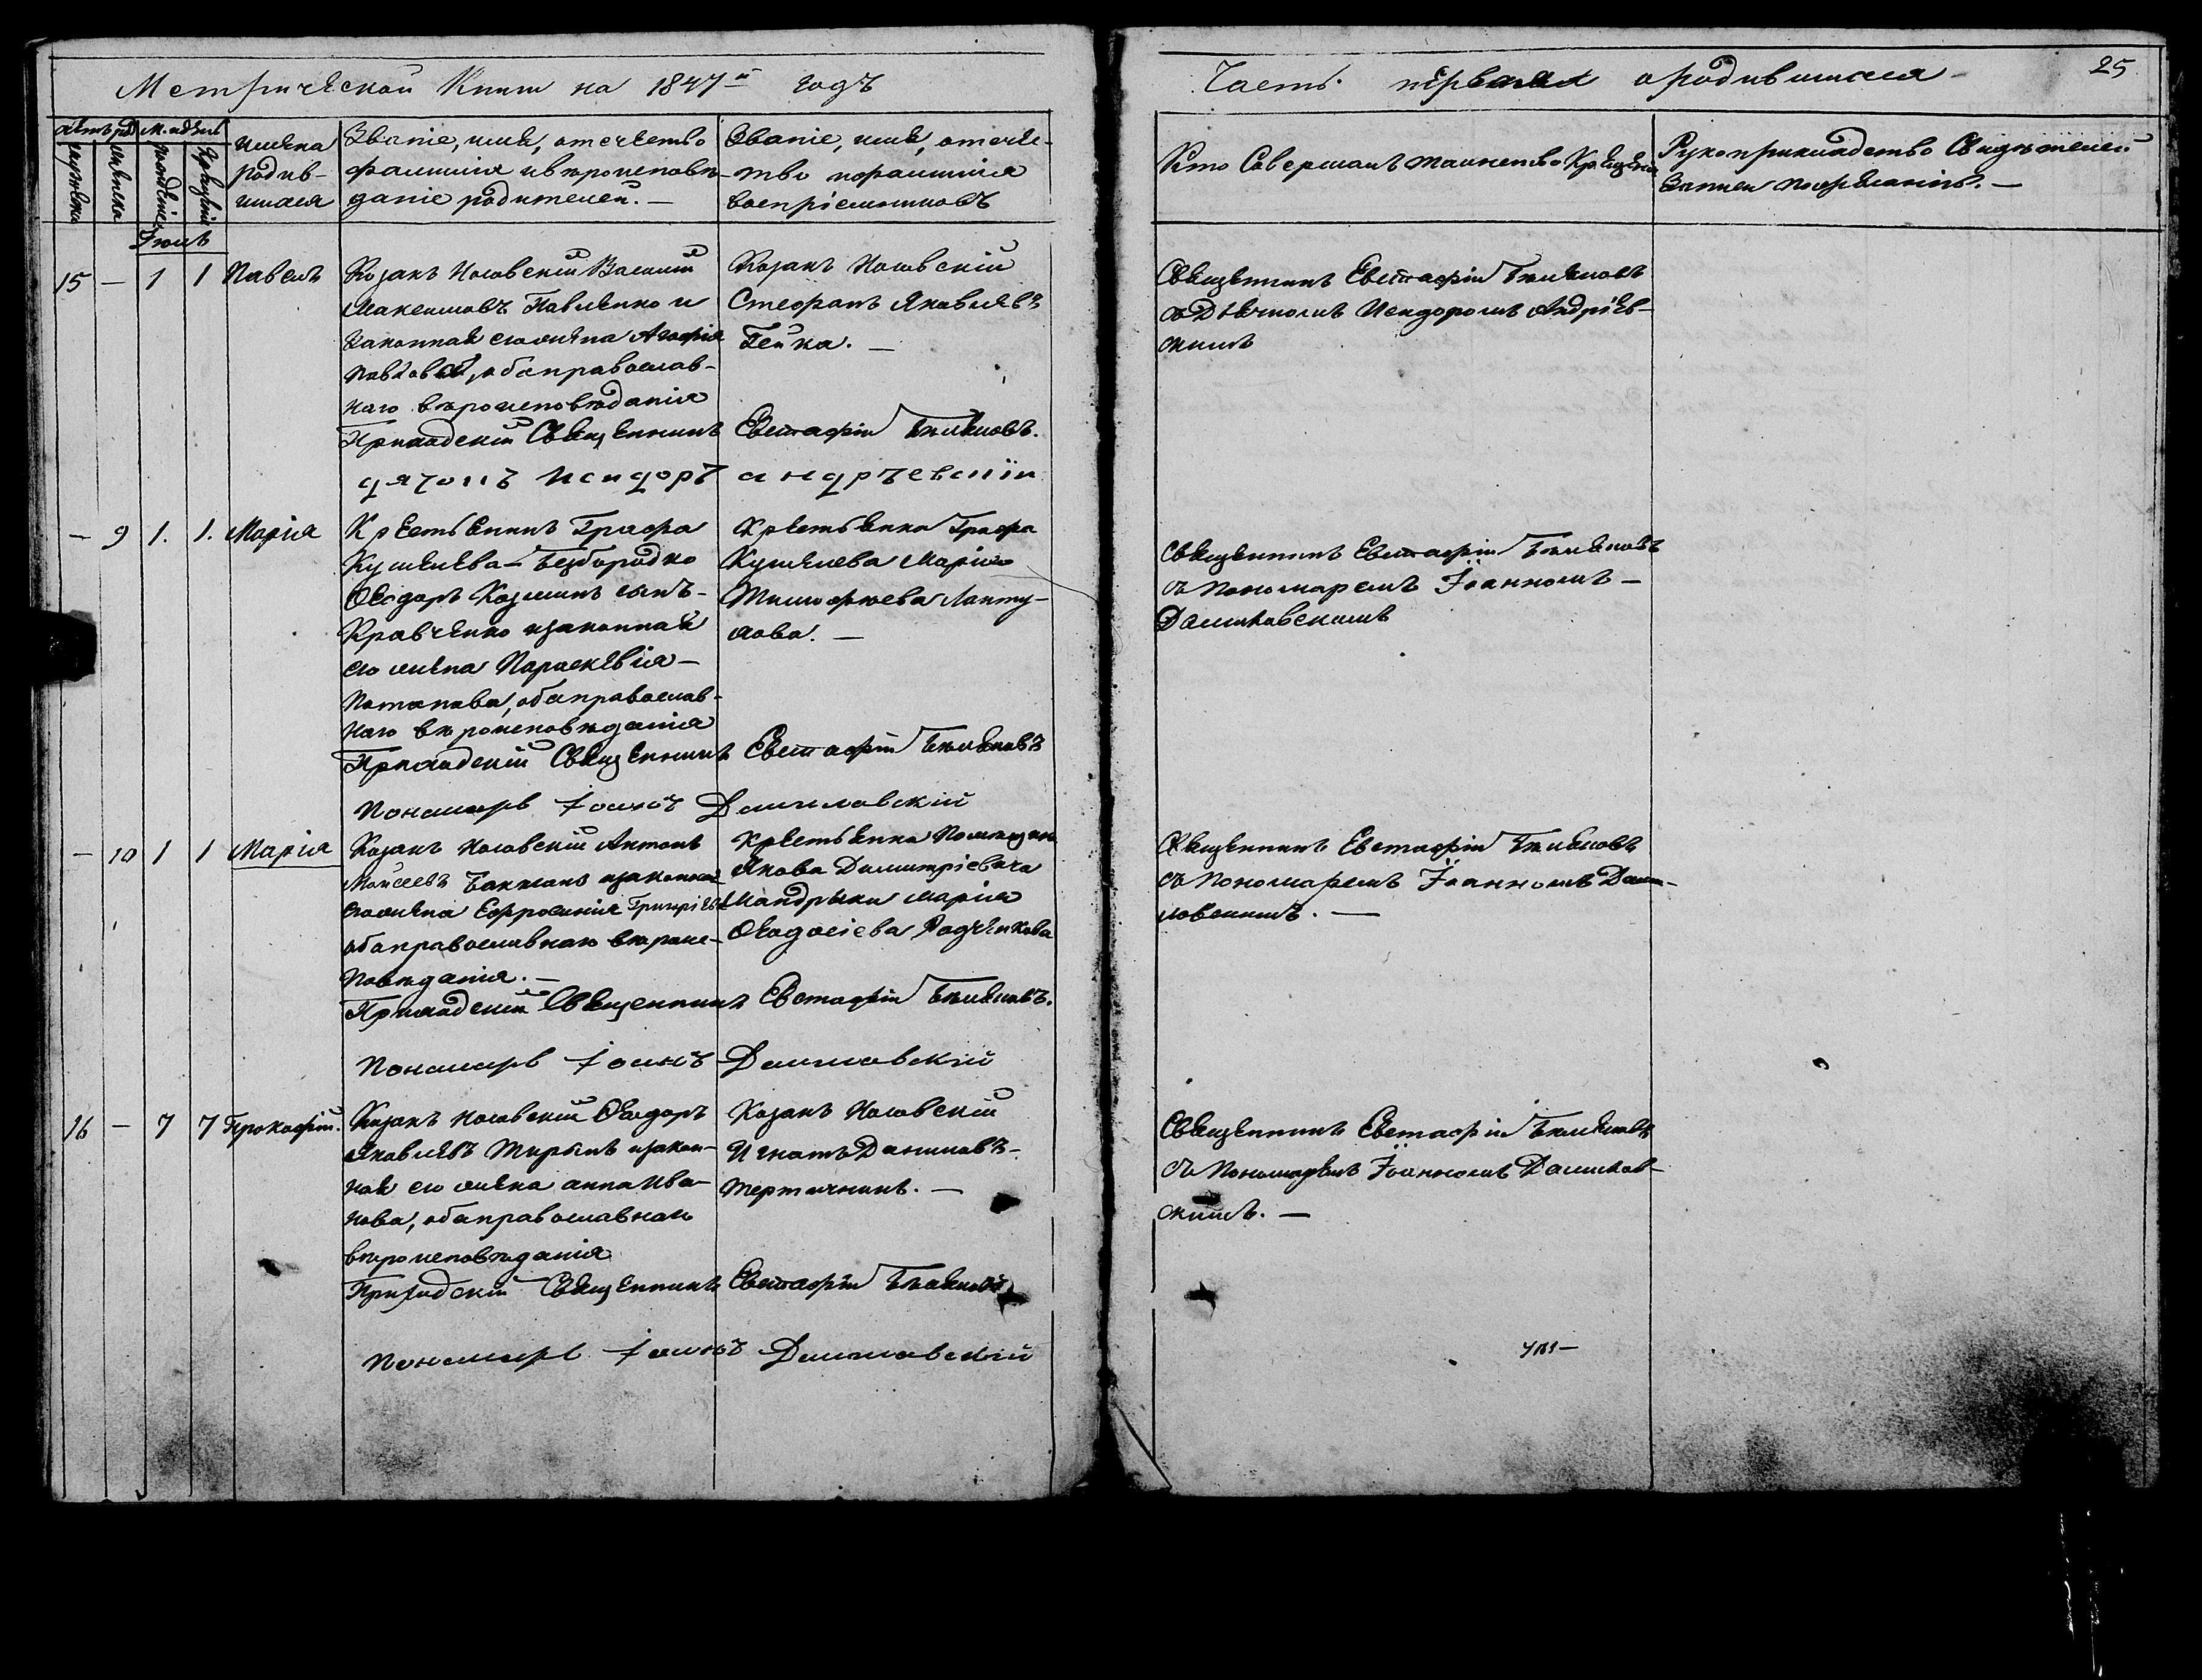 Метрической Книги на 1847й годъ
Часть первая о родившихся
25
счетъ род.
М. и день
мужеска
женска
рождение
крещение
имена
родив-
шихся
Званіе, имя, отечество
фамилія и вероисповѣ-
даніе родителей. —
Званіе, имя, отече-
тво и фамилія
воспріемниковъ
Кто Совершалъ таинство Крещенія
Рукоприкладство Свидѣтелей
Записи по желанію. —
Іюль
15 — 1 1 Павелъ
Козакъ Носовскій Василій
Максимовъ Павленко и
Законная его жена Агафія
Павлова, оба православ-
наго вѣроисповѣданія
Козакъ Носовскій
Стефанъ Яковлевъ
Гейка. —
Священникъ Евстафій Бѣляновъ
съ Дьячкомъ Исидоромъ Андріев-
скимъ
Приходскій Священникъ Евстафій Бѣляновъ.
дячокъ Исидоръ андрѣевскій
— 9 1. 1. Марія
Крестьянинъ Графа
Кушелева-Безбородко
Ѳеодоръ Козминъ сынъ-
Кравченко и законная
его жена Параскевія-
Потапова, оба православ-
наго вѣроисповѣданія
Крестьянка Графа
Кушелева Марія
Тимофеева Лапту-
лова. —
Священникъ Евстафій Бѣляновъ
съ Пономаремъ Іоанномъ —
Даниловскимъ
Приходскій Священникъ Евстафій Бѣляновъ
Пономарь Іоаннъ Даниловскій
— 10 1 1 Марія
Козакъ Носовскій Антонъ
Моисеевъ и законная
его жена Евфросинія Григоріева
оба православнаго вѣроис-
повѣданія. —
Крестьянка Помѣщика
Якова Димитріевича
Мандрыки Марія
Ѳеодосіева Радченкова
Священникъ Евстафій Бѣляновъ
съ Пономаремъ Іоанномъ Дани-
ловскимъ. —
Приходскій Священникъ Евстафій Бѣляновъ.
Пономарь Іоаннъ Даниловскій
16 — 7 7 Прокофій.
Козакъ Носовскій Ѳеодоръ
Яковлевъ и закон-
ная его жена Анна Ива-
нова, оба православнаго
вѣроисповѣданія
Козакъ Носовскій
Игнатъ Даниловъ-
Тертичникъ. —
Священникъ Евстафій Бѣляновъ
съ Пономаремъ Іоанномъ Данилов-
скимъ. —
Приходскій Священникъ Евстафій Бѣляновъ
Пономарь Іоаннъ Даниловскій